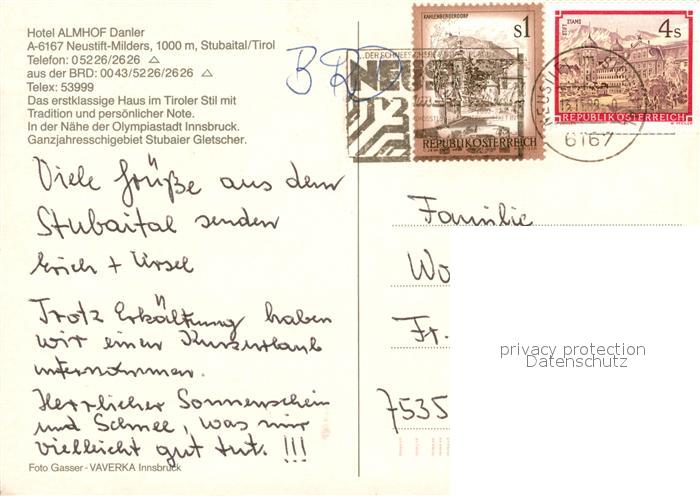 Hotel ALMHOF Danler
A-6167 Neustift-Milders, 1000 m, Stubaital/Tirol
Telefon: 05226/2626 △
aus der BRD: 0043/5226/2626 △
Telex: 53999
Das erstklassige Haus im Tiroler Stil mit
Tradition und persönlicher Note.
In der Nähe der Olympiastadt Innsbruck.
Ganzjahresschigebiet Stubaier Gletscher.
Viele Grüße aus dem
Stubaital senden
Erich + Ursel
Trotz Erkältung haben
wir einen Kurzurlaub
unternommen.
Herrlicher Sonnenschein
und Schnee, was mir
vielleicht gut tut. !!!
Foto Gasser - VAVERKA Innsbruck
BRD
KAHLENBERGERDORF
S1
REPUBLIK ÖSTERREICH
STIFT STAMS
4s
REPUBLIK ÖSTERREICH
6167
Familie
Wo
Fr.
7535
privacy protection
Datenschutz